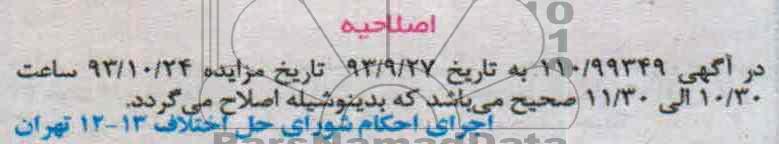 اصلاحیه
در آگهی ۱۱۰/۹۹۳۴۹ به تاریخ ۹۳/۹/۲۷ تاریخ مزایده ۹۳/۱۰/۲۴ ساعت
۱۰/۳۰ الی ۱۱/۳۰ صحیح می‌باشد که بدینوشیله اصلاح می‌گردد.
اجرای احکام شورای حل اختلاف ۱۳-۱۲ تهران
ParsNamadData